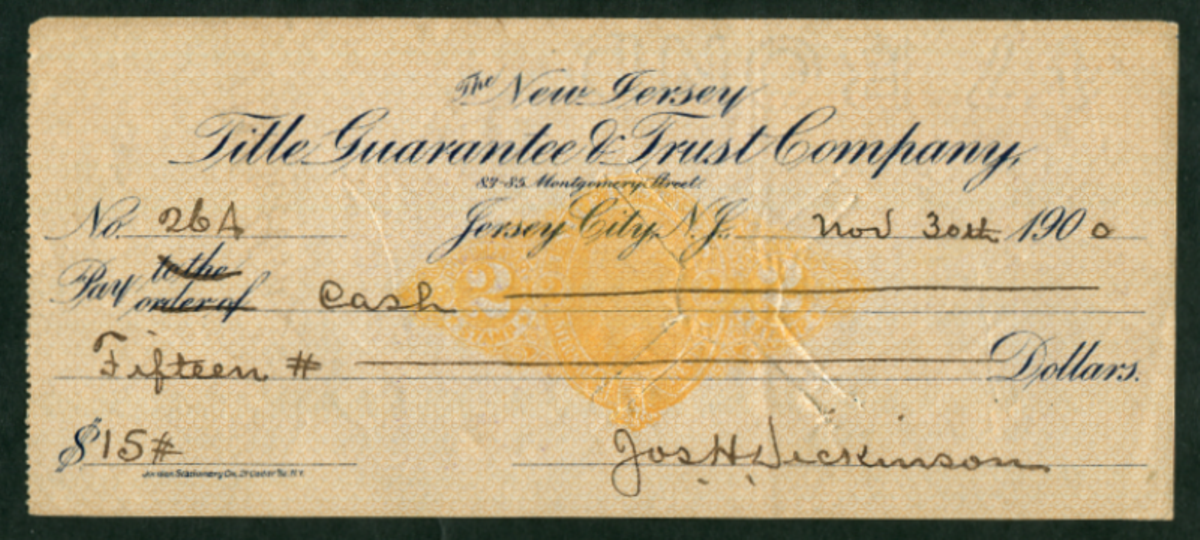 The New Jersey
Title Guarantee & Trust Company,
83-85 Montgomery Street.
No. 26A Jersey City, N.J. Nov 30th 1900
Pay to the order of Cash
2 2
Fifteen # Dollars.
$15#
Jos H. Dickinson